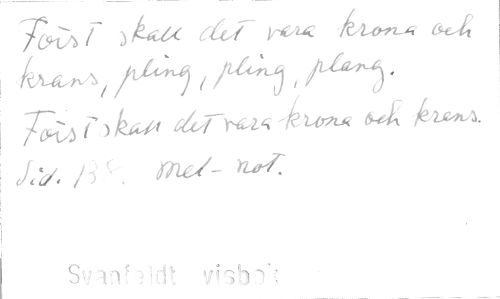 Först skall det vara krona och
krans, pling, pling, plang.
Först skall det vara krona och krans.
Sid. 138. mel-not.
Svanfeldt visbok